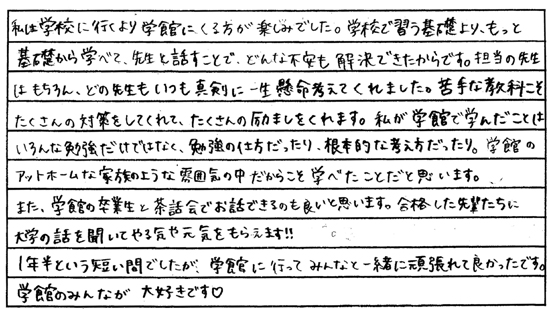 私は学校に行くより学館にくる方が楽しみでした。学校で習う基礎より、もっと
基礎から学べて、先生と話すことで、どんな不安も解決できたからです。担当の先生
はもちろん、どの先生もいつも真剣に一生懸命考えてくれました。苦手な教科こそ
たくさんの対策をしてくれて、たくさんの励ましをくれます。私が学館で学んだことは
いろんな勉強だけではなく、勉強の仕方だったり、根本的な考え方だったり。学館の
アットホームな家族のような雰囲気の中だからこそ学べたことだと思います。
また、学館の卒業生と茶話会でお話できるのも良いと思います。合格した先輩たちに
大学の話を聞いてやる気や元気をもらえます!!
1年半という短い間でしたが、学館に行ってみんなと一緒に頑張れて良かったです。
学館のみんなが大好きです♡